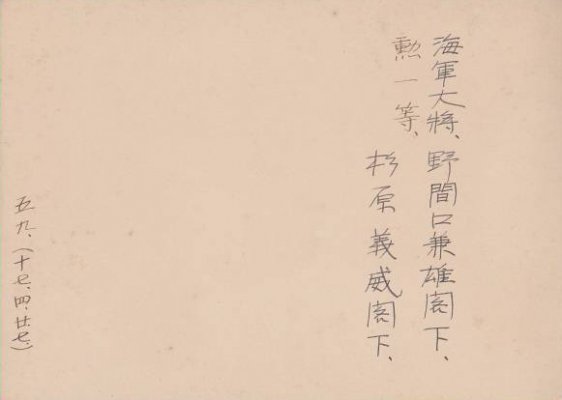 海軍大将、野間口兼雄閣下、
勲一等、杉原義威閣下、
五九、(十七、四、廿七、)